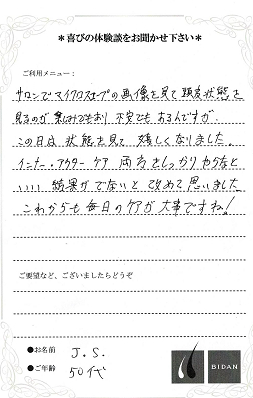 ＊喜びの体験談をお聞かせ下さい＊
ご利用メニュー：
サロンでマイクロスコープの画像を見て頭皮状態を
見るのが楽しみでもあり 不安でもあるんですが、
この日は 状態を見て 嬉しくなりました。
インナー・アウター ケア 両方をしっかりやらないと
いい 結果がでないと 改めて 思いました
これからも 毎日のケアが 大事ですね!
ご要望など、ございましたらどうぞ
●お名前 J.S.
●ご年齢 50代
BIDAN